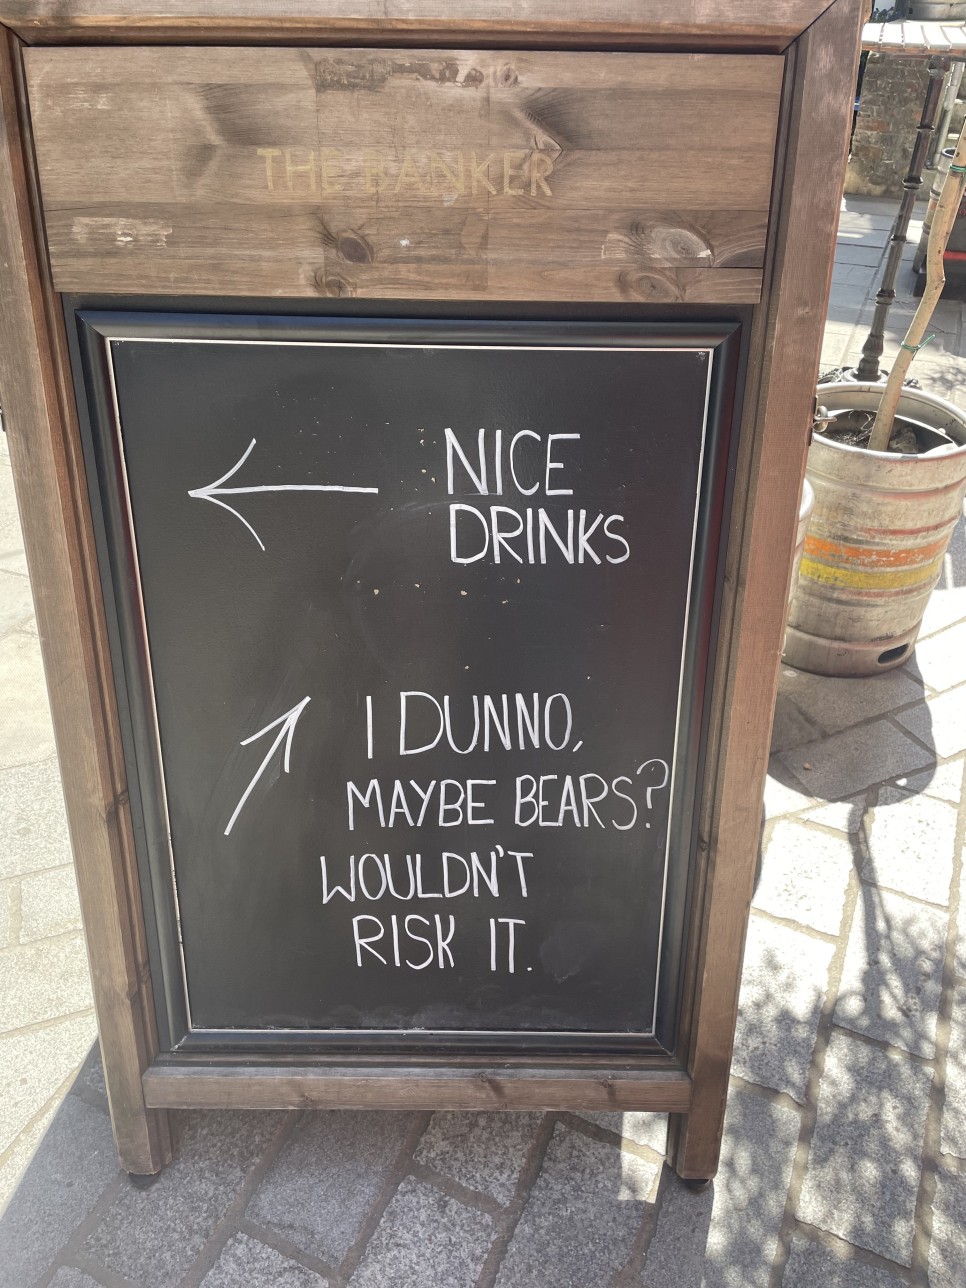 THE BANKER
NICE
DRINKS
I DUNNO,
MAYBE BEARS?
WOULDN'T
RISK IT.